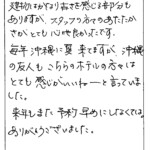 建物はかなり古さを感じる部分も
ありますが、スタッフの方々のあたたか
さがとても心地良かったです。
毎年沖縄に来てますが、沖縄
の友人もこちらのホテルの方々は
とても感じがいいねーと言っていま
した。
来年もまた予約早めにしなくては。
ありがとうございました。